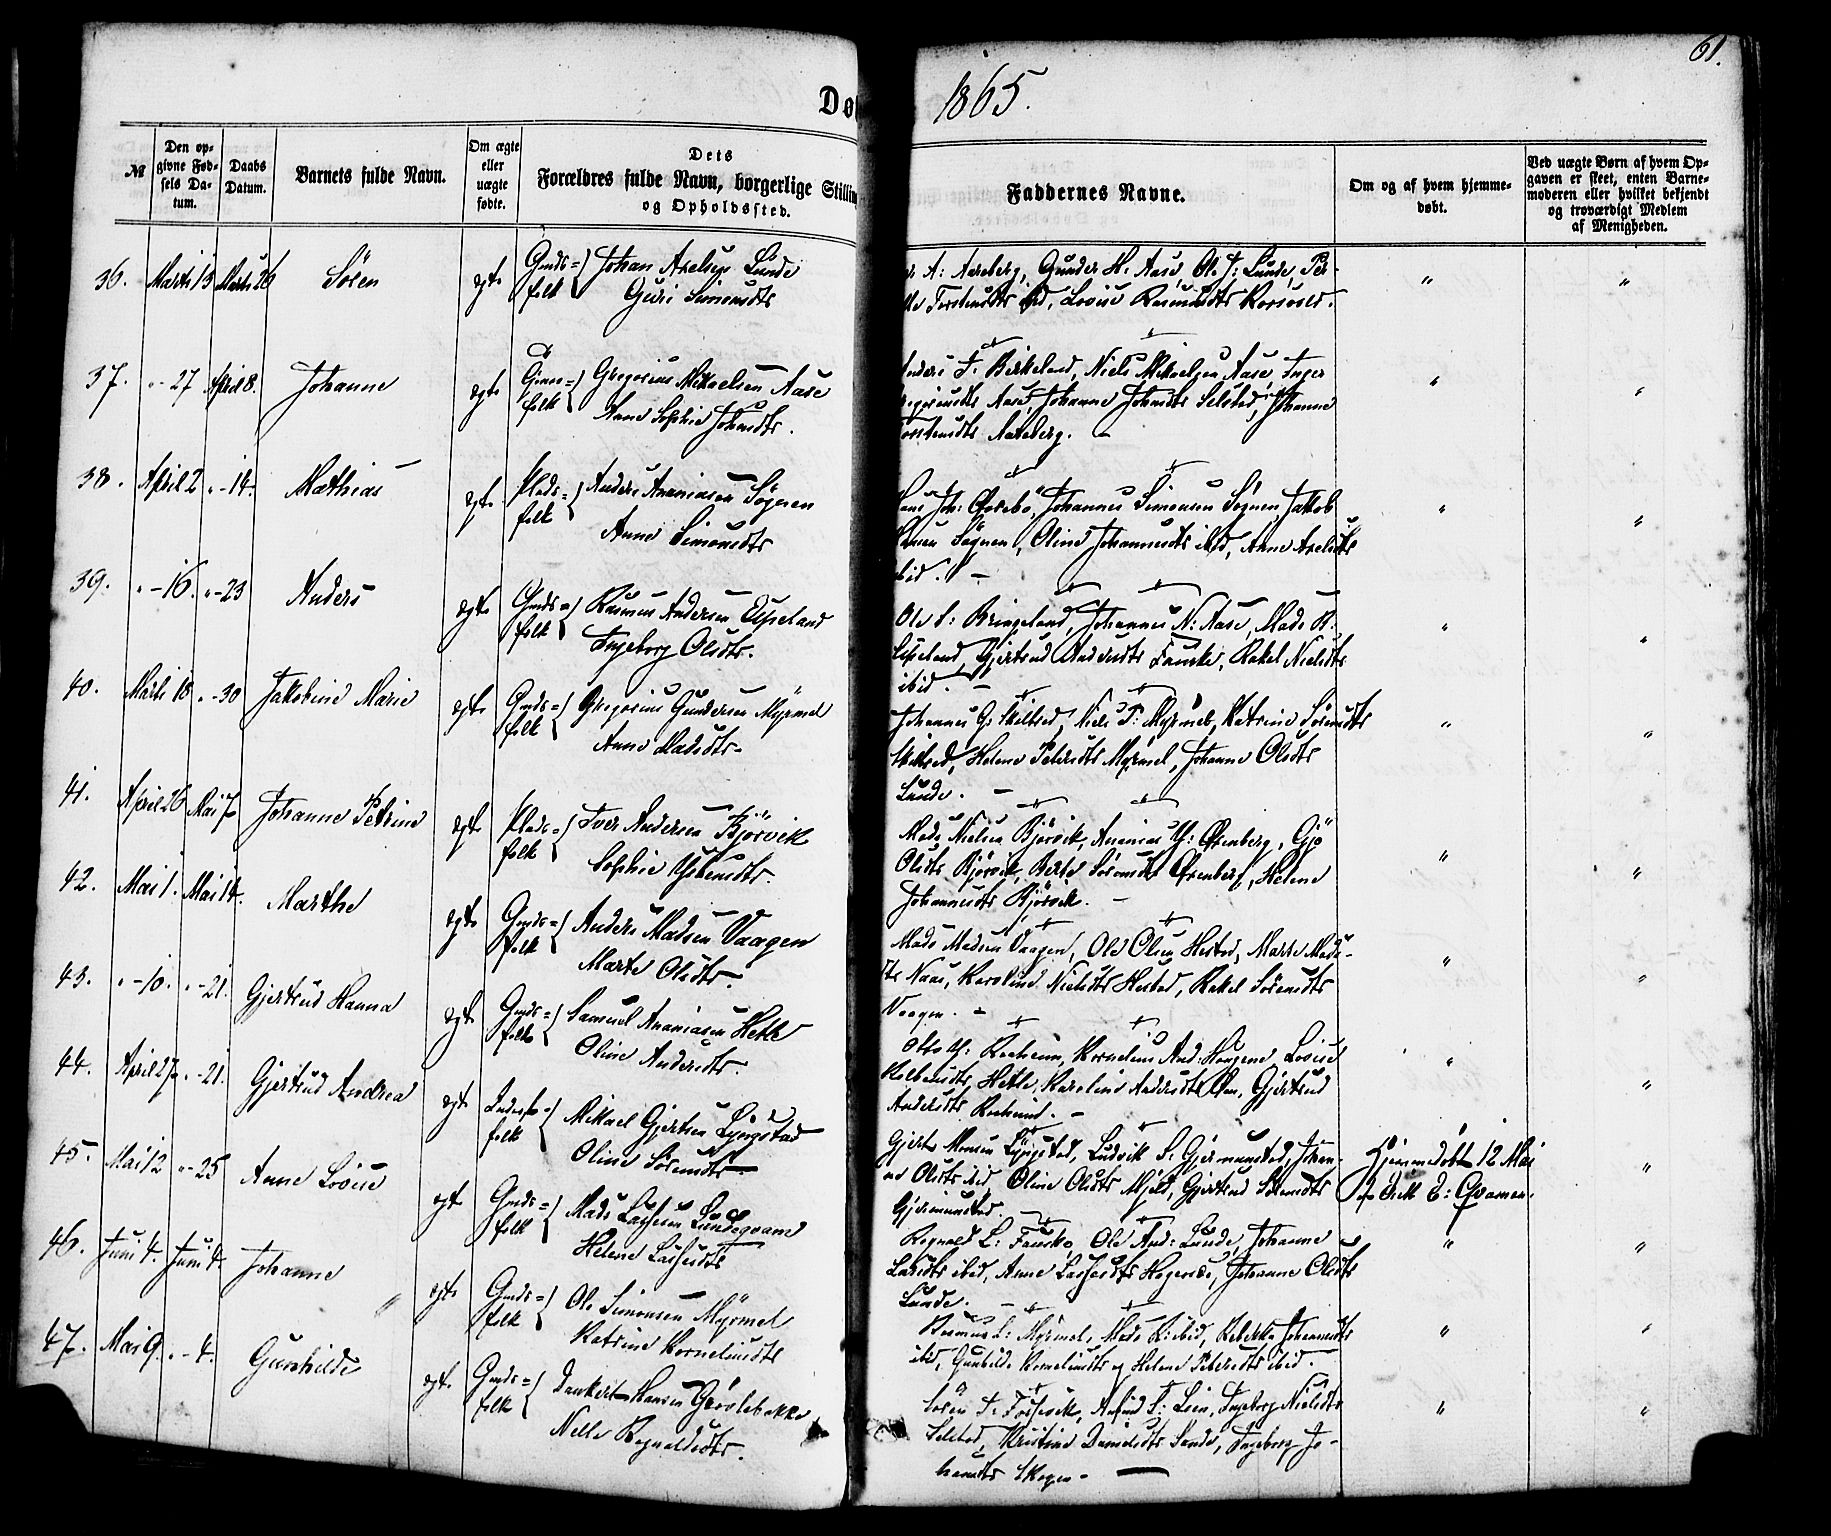 61.
Dø
1865.
№
Den op-
givne Fød-
sels Da-
tum.
Daabs
Datum.
Barnets fulde Navn.
Om ægte
eller
uægte
fødte.
Dets
Forældres fulde Navn, borgerlige Stilling
og Opholdssted.
Faddernes Navne.
Om og af hvem hjemme-
døbt.
Ved uægte Børn af hvem Op-
gaven er skeet, enten Barne-
moderen eller hvilket bekjendt
og troværdigt Medlem
af Menigheden.
36. Marts 13 Marts 26 Sören ægt. Gmds= folk { Johan Axelsen Lunde
Guri Simonsdtr
A: Aareberg, Gunder H. Aase, Ole J: Lunde,
Torstensdtr ibid, Lovise Rasmusdtr " "
37. "-27 April 8. Johanne ægt. folk { Gregorius Mikaelsen Aase
Anne Sophie Johnsdtr.
Anders J. Birkeland, Niels Mikaelsen Aase, Inger
Aase, Johanne Johnsdtr Selstad, Johanne
Torstensdtr Aareberg. - " "
38. April 2 "-14. Mathias ægt. Plads= folk { Anders Ananiasen Sögnen
Anne Simonsdtr
Joh: Johannes Simonsen Sögnen, Jakob
Sögnen, Oline Johannesdtr ibid, Anne Axelsdtr
ibid. - " "
39. "-16. "-23 Anders ægt. Gmds= folk { Rasmus Andersen Espeland
Ingeborg Olsdtr.
Ole S: Bringeland, Johannes N: Aase, Mads R.
Espeland, Gjertrud Andersdtr Fauske, Rakel Nielsdtr
ibid. - " "
40. Marts 18 "-30 Jakobine Marie ægt. Gmds= folk { Gregorius Gundersen Myrmel
Anne Madsdtr-
Johannes G: Skilbred, Niels P: Myrmel, Katrine Sörensdtr
Skilbred, Helene Petersdtr Myrmel, Johanne Olsdtr
Lunde. - " "
41. April 26 Mai 7 Johanne Petrine ægt. Plads= folk { Iver Andersen Bjørvik
Sophie
Mads Nielsen Bjørvik, Ananias Øxenberg, Gjö
Olsdtr Bjørvik, Berte Sörensdtr Øxenberg, Helene
Johannesdtr Bjørvik. - " "
42. Mai 1. Mai 14. Marthe ægt. Gmds= folk { Anders Madsen Vaagen
Marte Olsdtr.
Mads Madsen Vaagen, Ole Olsen Hestad, Marte Mads-
dtr Naas, Karoline Nielsdtr Hestad, Rakel Sörensdtr
Vaagen. - " "
43. "-10. "-21. Gjertrud Hanna ægt. Gmds= folk { Samuel Ananiasen Hetle
Oline Andersdtr.
Otto Kornelius And: Lovise
Hetle, Karoline Andersdtr Gjertrud
Andersdtr - " "
44. April 27 "-21. Gjertrud Andrea ægt. folk { Mikael Gjertsen Lyngstad
Oline Sörensdtr
Gjert Monsen Lyngstad, Ludvik S. Gjermunstad, Johan-
ne Olsdtr ibid, Oline Olsdtr Mjell, Gjertrud Sörensdtr
Gjermunstad. Hjemmedöbt 12 Mai
af Erik E: Qvamen. "
45. Mai 12 "-25 Anne Lovise ægt. Gmds= folk { Mads Lassesen Lundeqvam
Helene Lassesdtr
Regnald L: Fauske, Ole And: Lunde, Johanne
Larsdtr ibid, Anne Lassesdtr Johanne Olsdtr
Lunde. - " "
46. Juni 4. Juni 4. Johanne ægt. Gmds= folk { Ole Simonsen Myrmel
Katrine Korneliusdtr
Rasmus L: Myrmel, Mads R: ibid, Rebekka Johannesdtr
ibid, Gunhilde Korneliusdtr og Helene Petersdtr ibid. " "
47. Mai 9. "-4. Gunhilde ægt. Gmds= folk { Dankert Hansen Grövlebakke
Nelle Regnaldsdtr.
Sören J. Fossevik, S: Lien, Ingeborg Nielsdtr
Selstad, Kristine Danielsdtr Sande, Ingeborg Jo-
hansdtr Skogen - " "